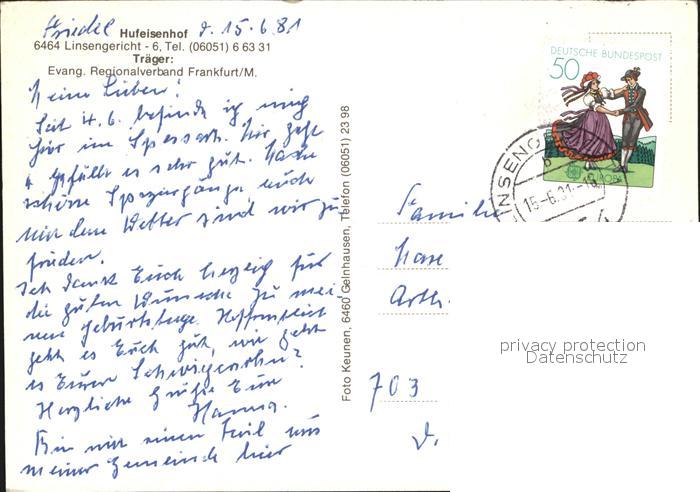 d. 15.6.81
Hufeisenhof
6464 Linsengericht - 6, Tel. (06051) 6 63 31
Träger:
Evang. Regionalverband Frankfurt/M.
Meine Lieben!
Seit 4.6. befinde ich mich
hier im Spessart. Mir geht
gefällt es sehr gut. Habe
schöne Spaziergänge auch
mit dem Wetter sind wir zu
frieden.
Ich danke Euch herzlich für
die guten Wünsche zu mei
nem Geburtstage. Hoffentlich
geht es Euch gut, wie geht
es Eurer Schwiegersohn?
Herzliche Grüße Eure
Hanna.
Bin mit einem Teil aus
meiner Gemeinde hier
Foto Keunen, 6460 Gelnhausen, Telefon (06051) 23 98
DEUTSCHE BUNDESPOST
50
15-6.81-18
Familie
703
privacy protection
Datenschutz